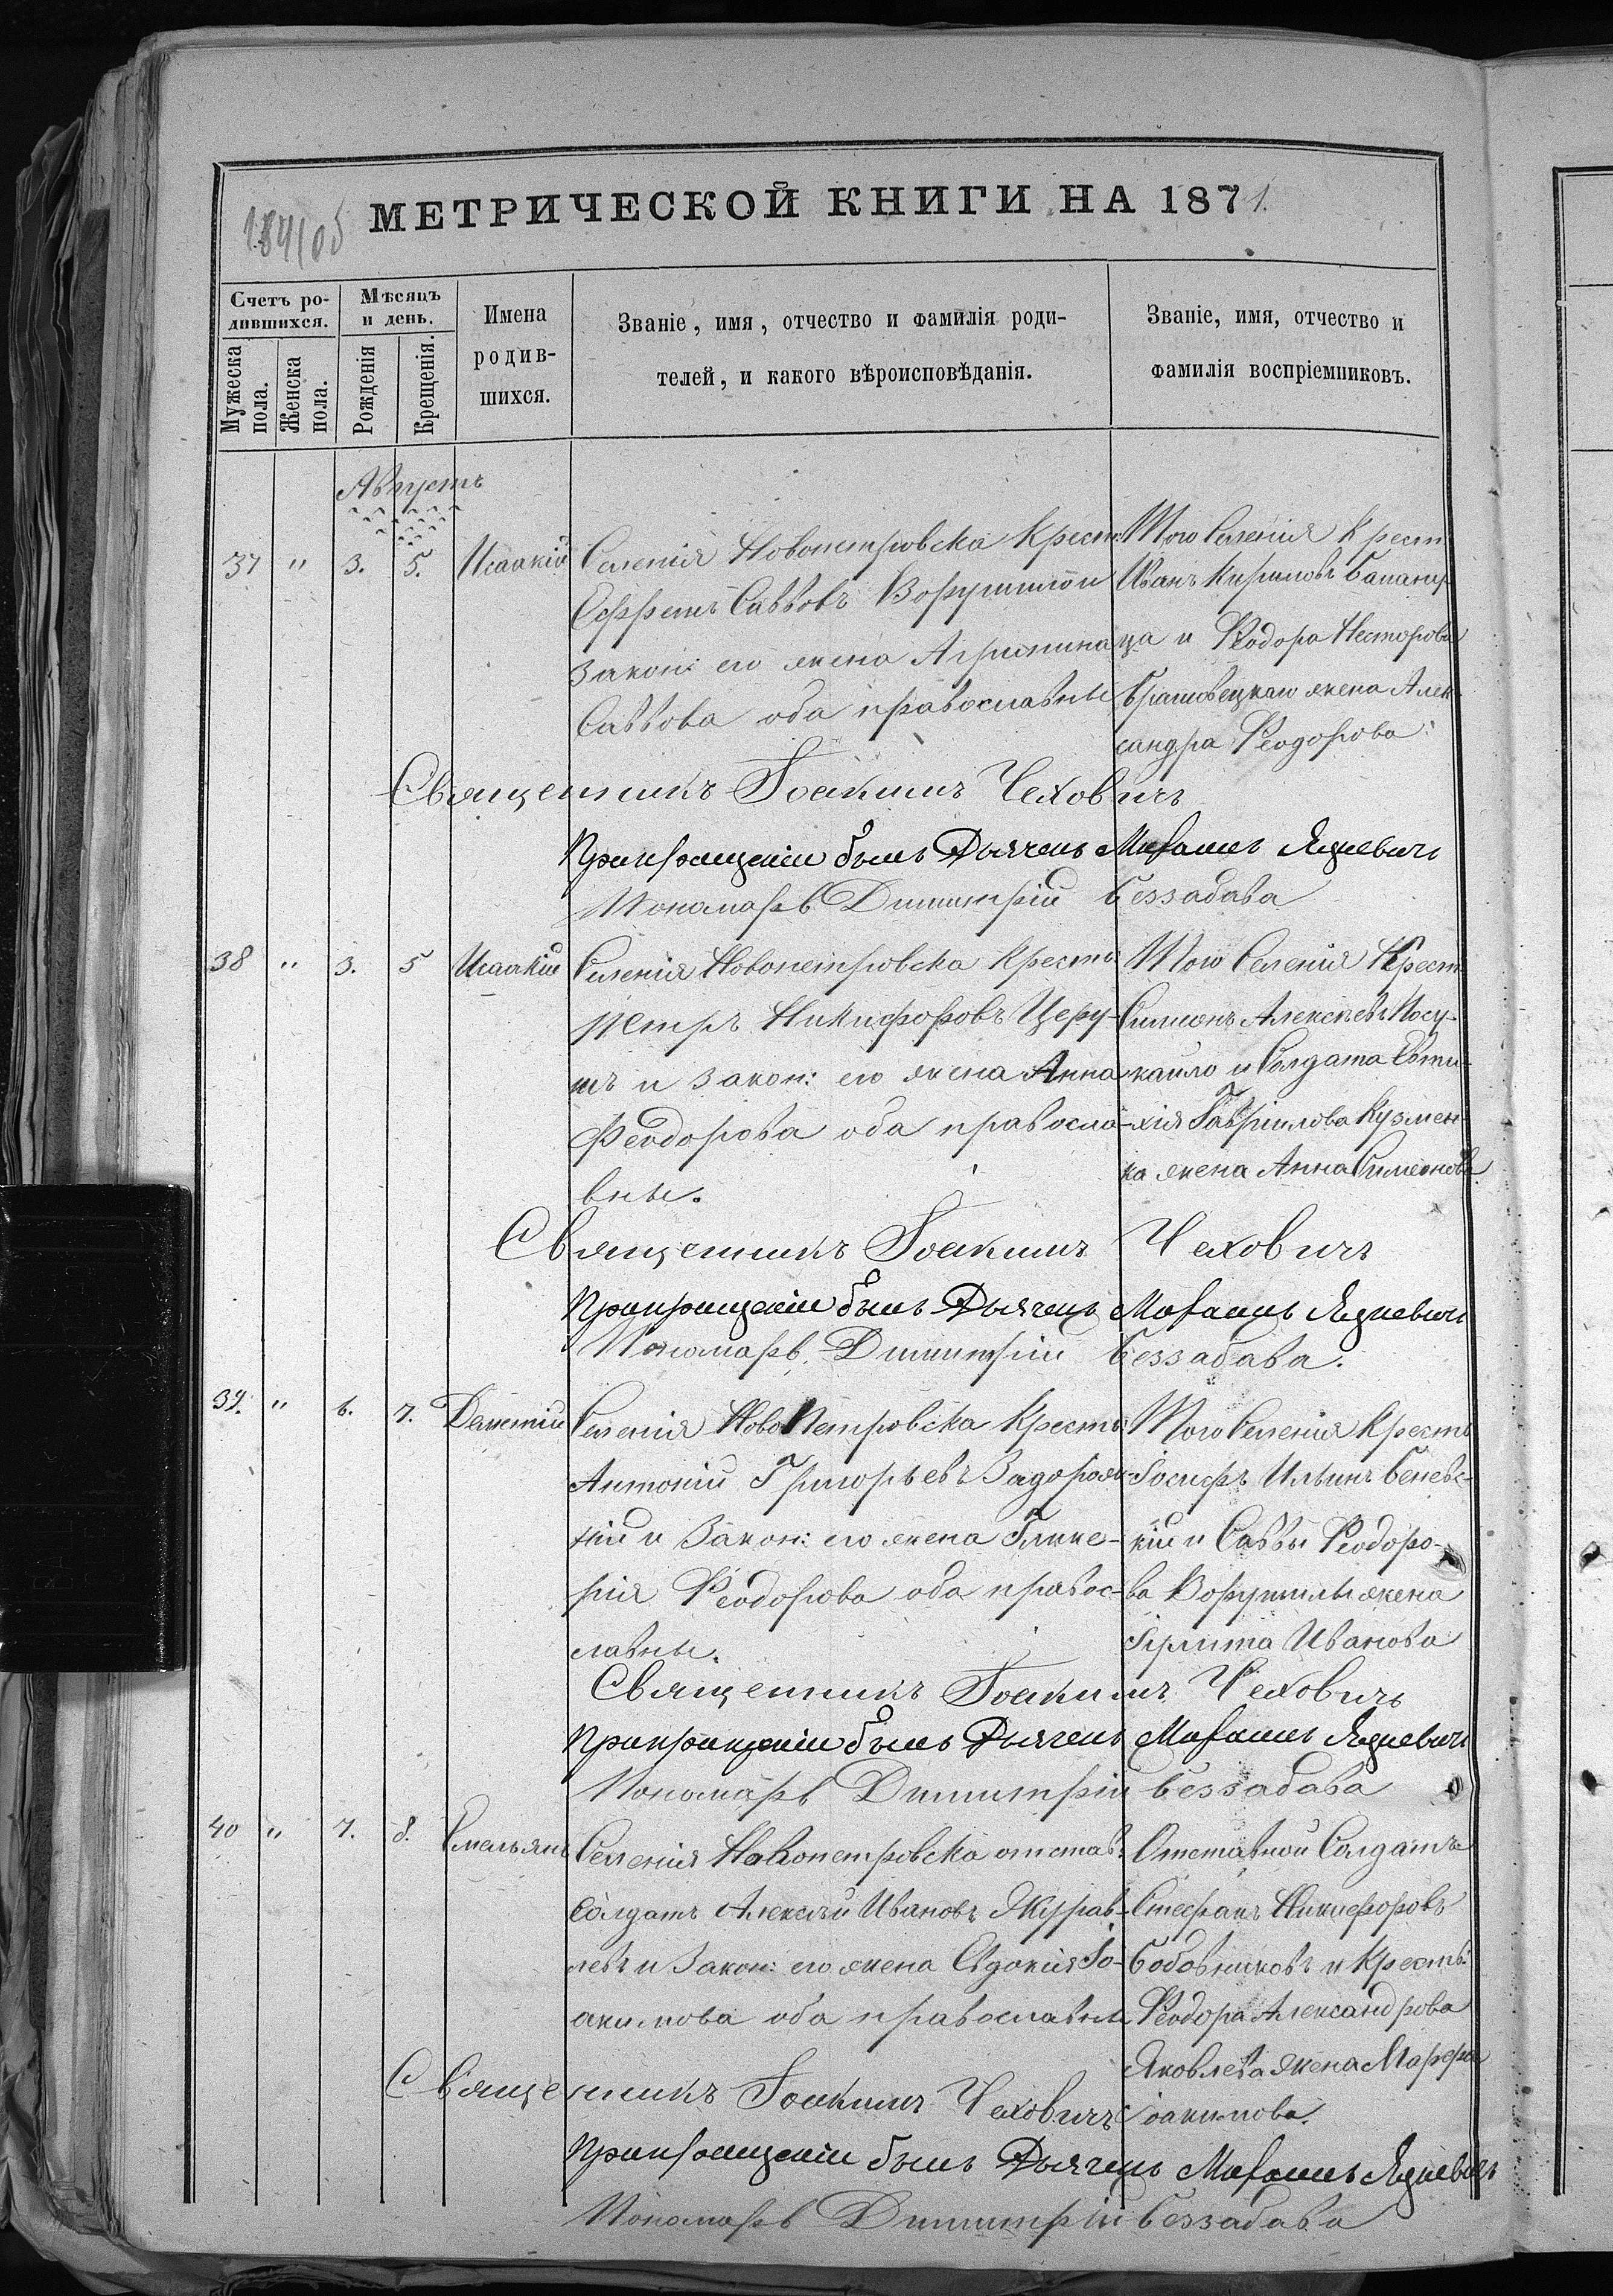 МЕТРИЧЕСКОЙ КНИГИ НА 1871.
Счетъ ро-
дившихся.
Мужеска пола.
Женска пола.
Мѣсяцъ
и день.
Рожденія
Крещенія.
Имена
родив-
шихся.
Званіе, имя, отчество и фамилія роди-
телей, и какого вѣроисповѣданія.
Званіе, имя, отчество и
фамилія воспріемниковъ.
Августъ
37 " 3. 5. Исаакій
Селенія Новопетровска Крест:
Ефремъ Саввовъ
Закон: его жена Агрипина
Саввова оба православны
Того Селенія Крест
Иванъ Кириловъ
ца и Феодора Несторова
жена Алек-
сандра Феодорова
Священникъ Іоакимъ Чеховичъ
При крещеніи былъ Дьячекъ
Пономарь Димитрій Беззабава
38 " 3. 5 Исаакій
Селенія Новопетровска Крестъ
Петръ Никифоровъ Церу-
тъ и Закон: его жена Анна
Феодорова оба правосла-
вны.
Того Селенія Крест
Симеонъ Алексѣевъ
и Солдата Евти-
хія Гавріилова Кузмен-
ка жена Анна Симеонова
Священникъ Іоакимъ Чеховичъ
При крещеніи былъ Дьячекъ
Пономарь Димитрій Беззабава.
39. " 6. 7. Дометій
Селенія НовоПетровска Крестъ:
Антоній Григорьевъ Задорож-
ній и Закон: его жена Глике-
рія Феодорова оба правос-
лавны.
Того Селенія Крестъ
Іосифъ Ильинъ Беневс-
кій и Саввы Феодоро-
ва жена
Ивановa
Священникъ Іоакимъ Чеховичъ
При крещеніи былъ Дьячекъ
Пономарь Димитрій Беззабава
40 " 7. 8. Емельянъ
Селенія Новопетровска отстав:
Солдатъ Алексѣй Ивановъ Журав-
левъ и Закон: его жена Евдокія Іо-
акимова оба православны
Отставной Солдатъ
Стефанъ Никифоровъ
Бобовниковъ и Крестъ:
Феодора Александрова
Яковлева жена Марфа
Іоакимова.
Священникъ Іоакимъ Чеховичъ
При крещеніи былъ Дьячекъ
Пономарь Димитрій Беззабава